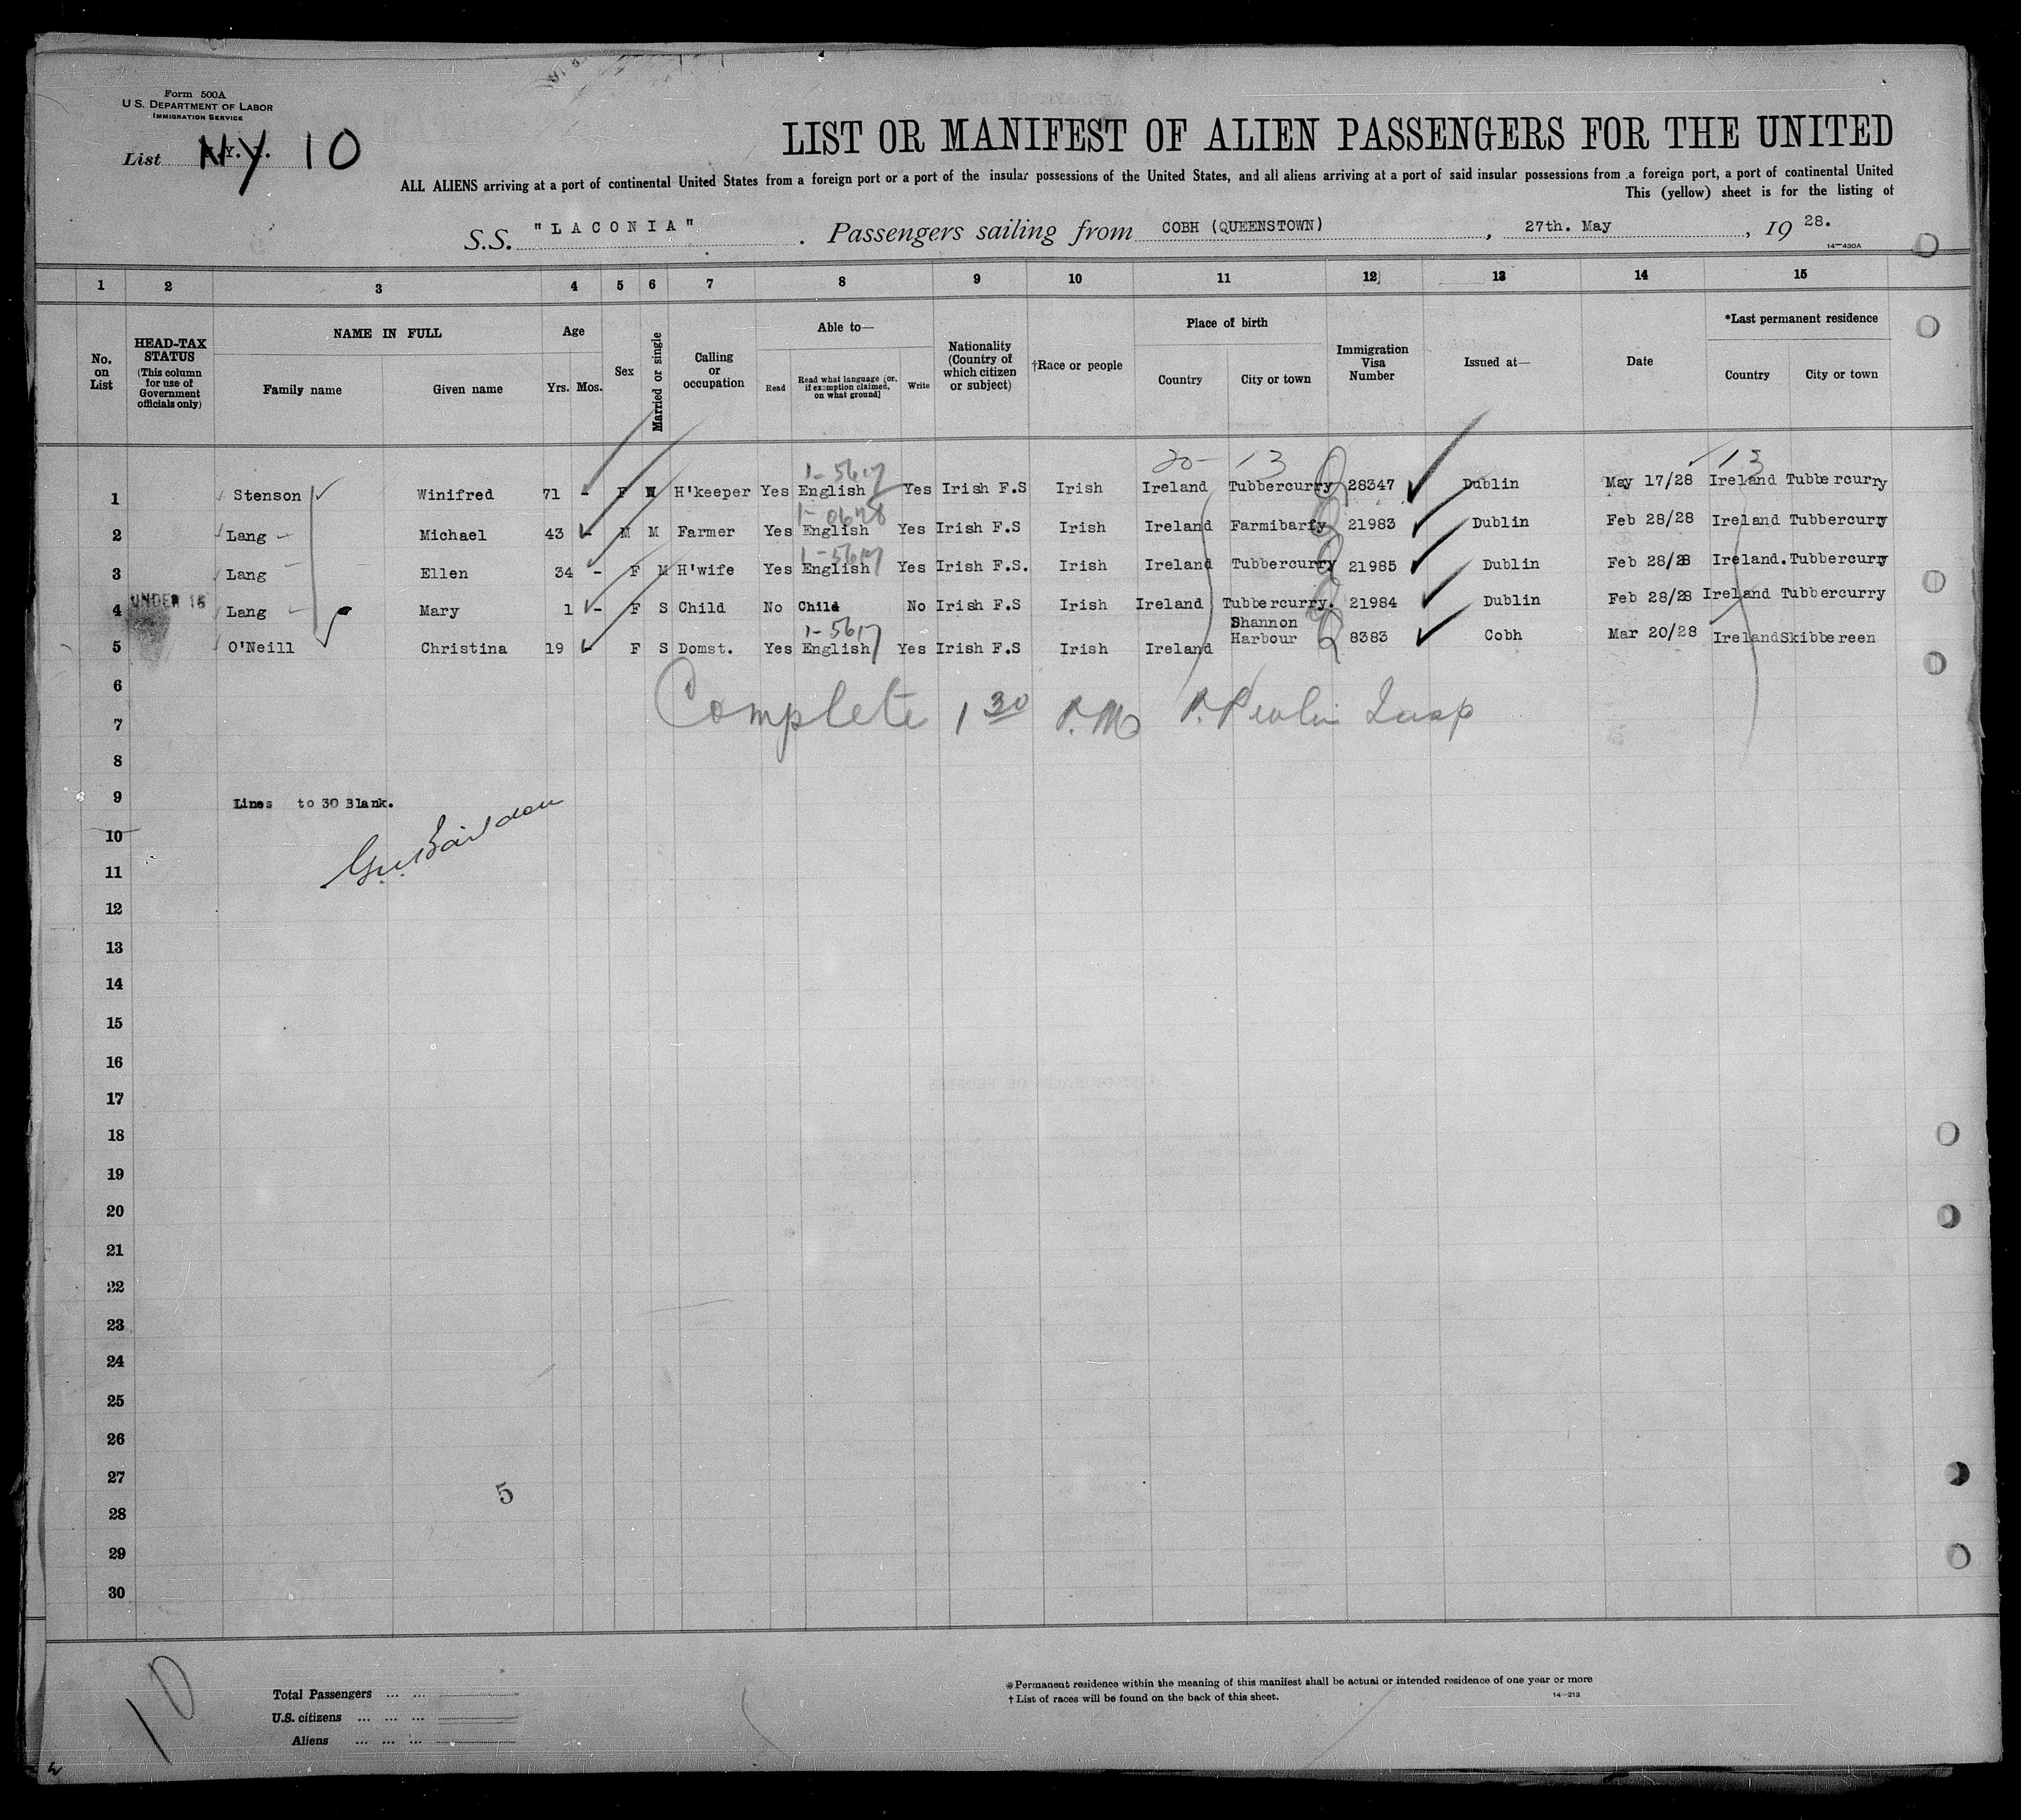 Form 500A
U.S. DEPARTMENT OF LABOR
IMMIGRATION SERVICE
List NY 10
LIST OR MANIFEST OF ALIEN PASSENGERS FOR THE UNITED
ALL ALIENS arriving at a port of continental United States from a foreign port or a port of the insular possessions of the United States, and all aliens arriving at a port of said insular possessions from a foreign port, a port of continental United
This (yellow) sheet is for the listing of
S.S. "LACONIA". Passengers sailing from COBH (QUEENSTOWN), 27th. May, 19 28.
14—430A
1 2 3 4 5 6 7 8 9 10 11 12 13 14 15
No. on List
HEAD-TAX STATUS (This column for use of Government officials only)
NAME IN FULL
Family name Given name
Age
Yrs. Mos.
Sex
Married or single
Calling or occupation
Able to—
Read
Read what language [or, if exemption claimed, on what ground]
Write
Nationality (Country of which citizen or subject)
†Race or people
Place of birth
Country City or town
Immigration Visa Number
Issued at—
Date
*Last permanent residence
Country City or town
20- 13 13
1-5617
1 Stenson Winifred 71 - F W H'keeper Yes English Yes Irish F.S Irish Ireland Tubbercurry 28347 Dublin May 17/28 Ireland Tubbercurry
1-0628
2 Lang Michael 43 - M M Farmer Yes English Yes Irish F.S Irish Ireland Farmibarfy 21983 Dublin Feb 28/28 Ireland Tubbercurry
1-5617
3 Lang Ellen 34 - F M H'wife Yes English Yes Irish F.S. Irish Ireland Tubbercurry 21985 Dublin Feb 28/28 Ireland. Tubbercurry
UNDER 16
4 Lang Mary 1 - F S Child No Child No Irish F.S Irish Ireland Tubbercurry. 21984 Dublin Feb 28/28 Ireland Tubbercurry
1-5617
5 O'Neill Christina 19 - F S Domst. Yes English Yes Irish F.S Irish Ireland Shannon Harbour 8383 Cobh Mar 20/28 Ireland Skibbereen
6
Complete 1 30 P.M. Insp
7
8
9 Lines to 30 Blank.
10
11
12
13
14
15
16
17
18
19
20
21
22
23
24
25
26
27
5
28
29
30
10
Total Passengers ... ...
U.S. citizens ... ... ...
Aliens ... ... ...
*Permanent residence within the meaning of this manifest shall be actual or intended residence of one year or more
†List of races will be found on the back of this sheet.
14—213